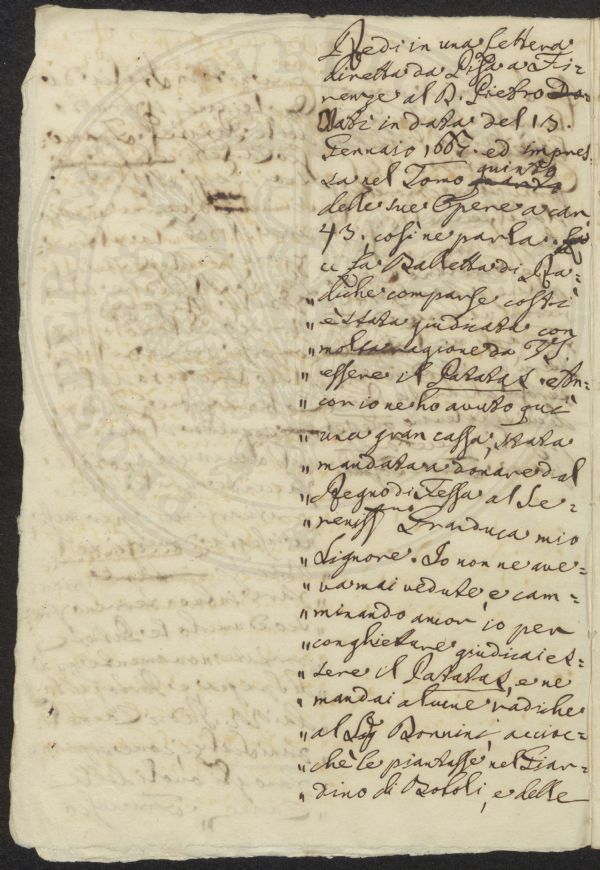 Redi in una lettera
diretta da Pisa a Fi=
renze al D. Pietro Do=
Nati in data del 13.
Gennaio 1667. ed impres=
sa nel Tomo quinto
delle sue Opere a car
43. cosi ne parla.
La Balletta di Ra=
„ diche comparse costì
„ è stata giudicata con
„ molta ragione da VS.
„ essere il Patatas. An=
„ cor io ne ho avuto quì
„ una gran cassa, stata
„ mandata a donare dal
„ Regno di Fessa al Se=
„ reniss.mo Granduca mio
„ Signore. Io non ne ave=
„ va mai vedute, e cam=
„ minando ancor, io per
„ conghietture giudicai es=
„ sere il Patatas, e ne
„ mandai alcune radiche
„ al Sig. Bonnini, accioc=
„ chè le piantasse nel Giar=
„ dino di Boboli, e delle